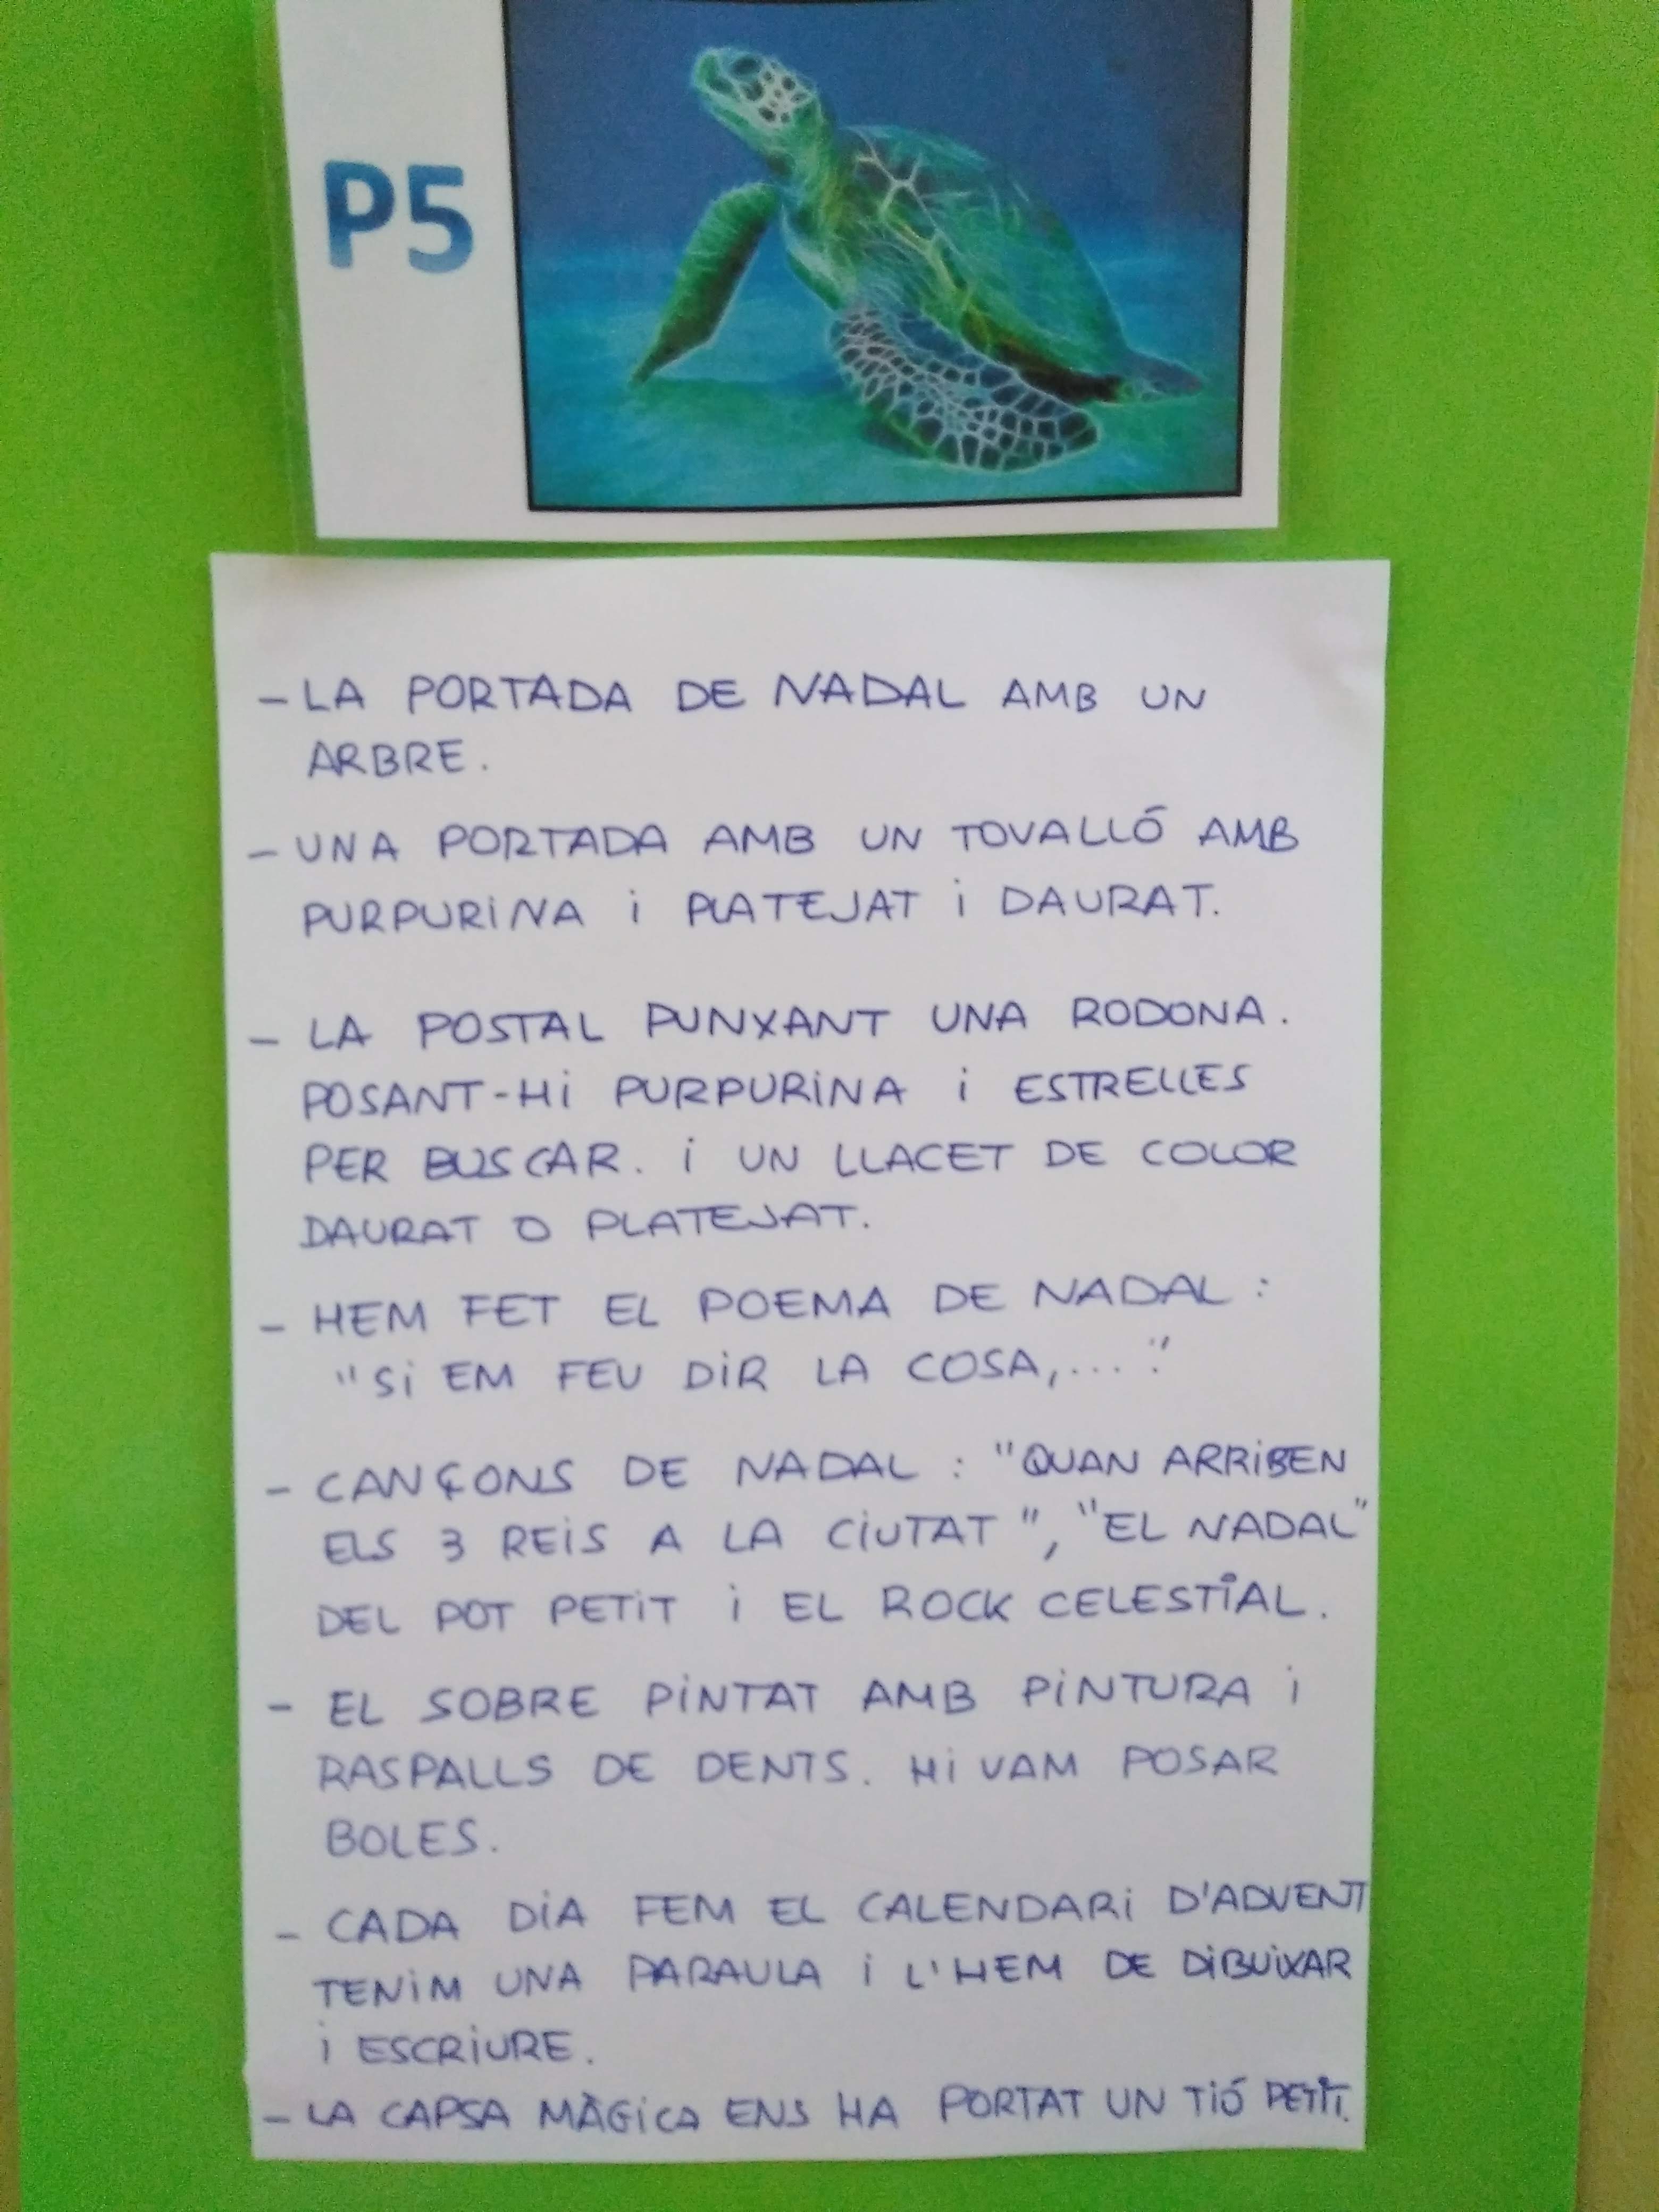 P5
- LA PORTADA DE NADAL AMB UN
ARBRE.
- UNA PORTADA AMB UN TOVALLÓ AMB
PURPURiNA i PLATEJAT i DAURAT.
- LA POSTAL PUNXANT UNA RODONA.
POSANT-Hi PURPURiNA i ESTRELLES
PER BUSCAR. i UN LLACET DE COLOR
DAURAT O PLATEJAT.
- HEM FET EL POEMA DE NADAL :
"Si EM FEU DiR LA COSA,... "
- CANÇONS DE NADAL : "QUAN ARRiBEN
ELS 3 REiS A LA CiUTAT", "EL NADAL"
DEL POT PETiT i EL ROCK CELESTiAL.
- EL SOBRE PiNTAT AMB PiNTURA i
RASPALLS DE DENTS. Hi VAM POSAR
BOLES.
- CADA DiA FEM EL CALENDARi D'ADVENT
TENiM UNA PARAULA i L'HEM DE DiBUiXAR
i ESCRiURE.
- LA CAPSA MÀGiCA ENS HA PORTAT UN TiÓ PETiT.